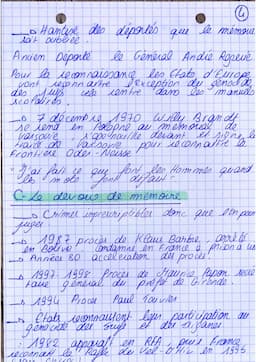 4
→ Hantise des déportés que le mémoire
soit oubliée
Ancien Déporté le Général André Rogerie
Pour la reconnaissance les Etats d'Europe
vont reconnaître l'exception du génocide
des juifs cela rentre dans les manuels
scolaires.
→ 7 décembre 1970 Willy Brandt
se rend en Pologne au mémorial de
Varsovie s'agenouille devant et signe le
traité de Varsovie pour reconnaître la
Frontière Oder-Neisse
"J'ai fait ce que font les Hommes quand
les mots font défaut"
C- Le devoir de mémoire
→ Crimes imprescriptibles donc que l'on peut
juger
→ 1987 procès de Klaus Barbie, arrêté
en Bolivie condamné en France à prison à vie
→ Années 80 accélération du procès
→ 1997-1998 Procès de Maurice Papon secré
taire général du préfet de Gironde.
→ 1994 Procès Paul Touvier
→ Etats reconnaissent leur participation au
génocide des juifs et des tziganes
1982 apparaît en RFA, puis France
reconnaît la Rafle du Vel-d'Hiv en 1995